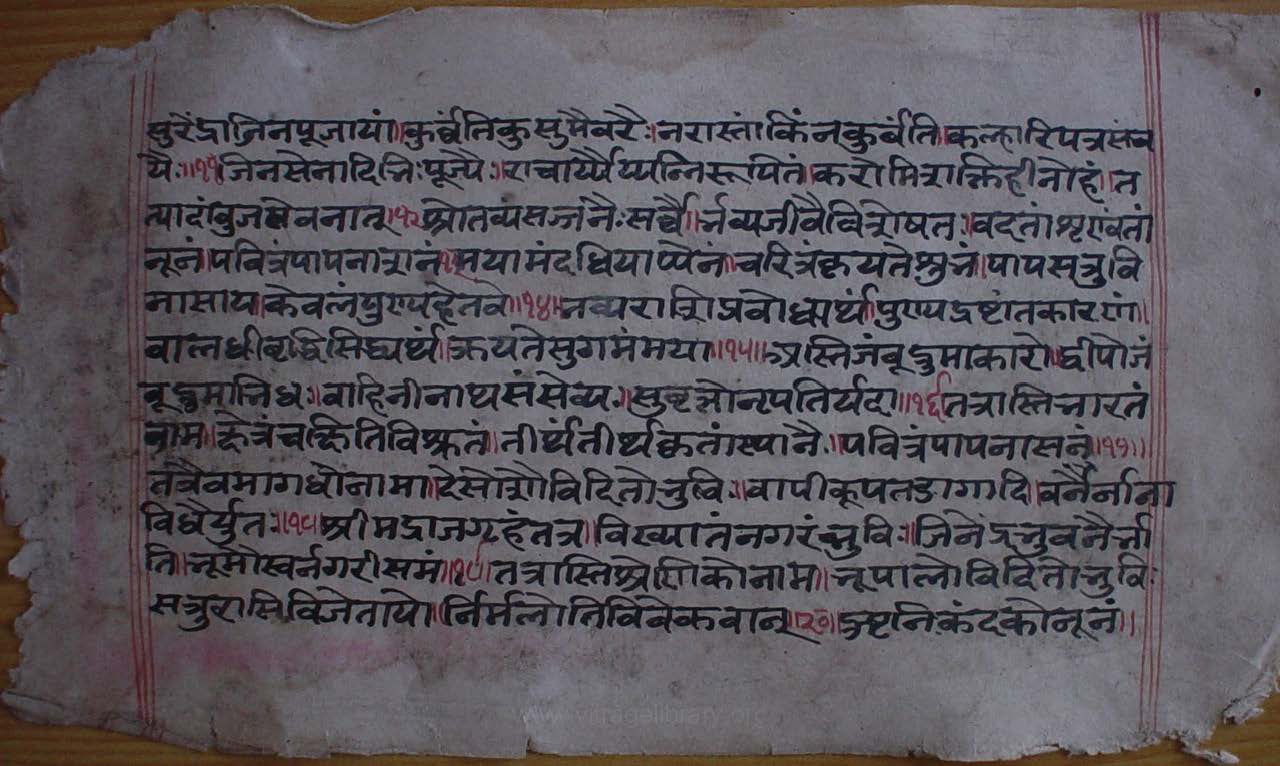 सुरेंद्राजिनपूजायां॥कुर्व्वंतिकुसुमैवरैः॥नरास्तांकिंनकुर्वंति॥कल्हारिपत्रसंच
यैः॥११॥जिनसेनादिभिःपूज्यैः॥राचार्य्यैर्य्यन्निरूपितं॥करोमिशक्तिहीनोहं॥त
त्पादांबुजसेवनात्॥१२॥श्रोतव्यंसज्जनैःसर्व्वै॥र्भव्यजीवैर्विशेषतः॥वदतांशृण्वंतां
नूनं॥पवित्रंपापनाशनं॥१३॥मयामंदधियाप्येनं॥चरित्रंकथ्यतेशुभं॥पापसत्रुवि
नासाय॥केवलंपुण्यहेतवे॥१४॥भव्यराशिप्रबोधार्थं॥पुण्यदृष्टांतकारणं॥
बालधीवृद्धिसिद्ध्यर्थं॥क्रियतेसुगमंमया॥१५॥अस्तिजंबूद्रुमाकारो॥द्वीपोजं
बूद्रुमाभिधः॥वाहिनीनाथसंसेव्यः॥सुवृत्तोनृपतिर्यदा॥१६॥तत्रास्तिभारतं
नाम॥क्षेत्रंचक्षितिविश्रुतं॥तीर्थंतीर्थकृतांस्थानैः॥पवित्रंपापनासनं॥१७॥
तत्रैवमागधोनामा॥देसोशौविदितोभुविः॥वापीकूपतडागादि॥वनैर्नाना
विधैर्युतः॥१८॥श्रीमद्राजगृहंतत्र॥विख्यातंनगरंभुविः॥जिनेंद्रभुवनैर्भा
ति॥भूमौस्वर्नगरीसमं॥१९॥तत्रास्तिश्रेणिकोनाम॥भूपालोविदितोभुविः
सत्रुरासिविजेतायो॥र्निर्मलोतिविवेकवान्॥२०॥दुष्टनिकंदकोनूनं॥
www.vitragelibrary.org